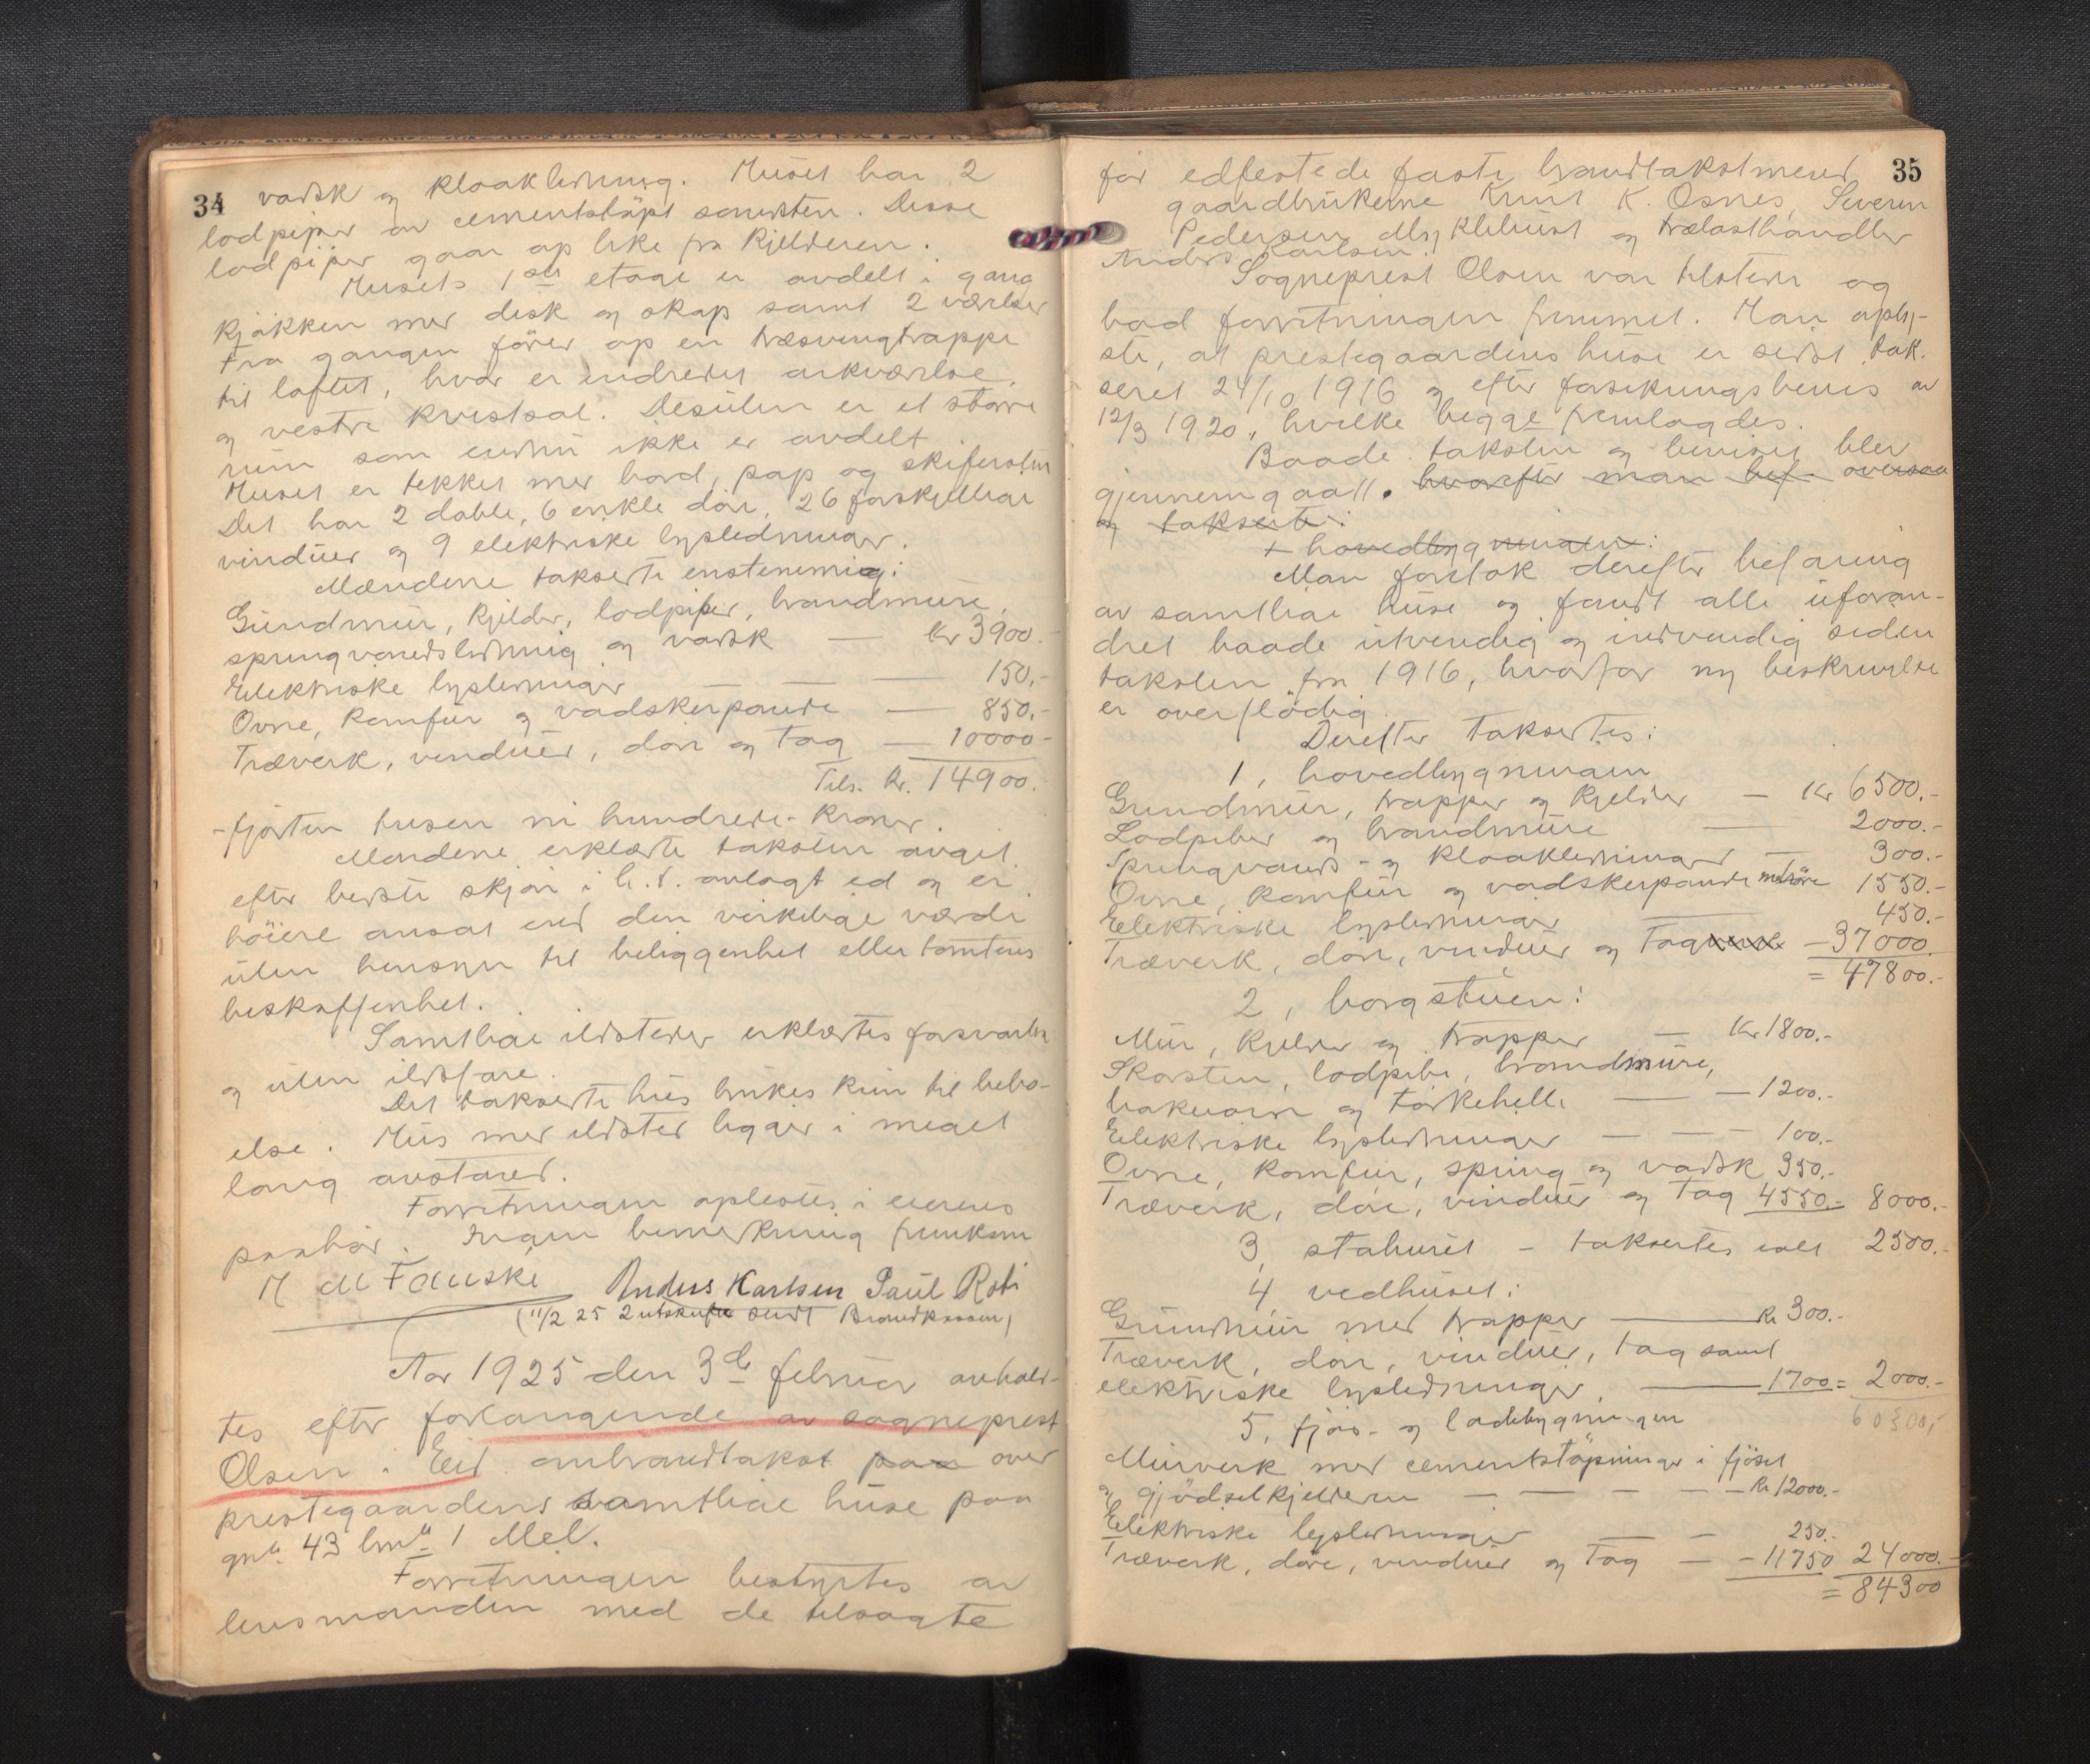 34
vadsk og kloakledning. Huset har 2
lodpiper av cementstöpt sandsten. Disse
lodpiper gaar op like fra kjelderen.
Husets 1ste etage er avdelt i gang
kjökken med disk og skap samt 2 værelser
Fra gangen förer op en træsvingtrappe
til loftet, hvor er indredet arkværelse
og vestre kvistsal. Desuten er et större
rum som endnu ikke er avdelt.
Huset er tekket med bord, pap og skifersten
Det har 2 doble, 6 enkle dörr, 26 forskjellige
vinduer og 9 elektriske lysledninger.
Mændene takserte enstemmig:
Gründmur, kjelder, lodpiper, brandmure,
springvandsledning og vadsk — Kr 3900.-
Elektriske lysledninger — — 150.-
Ovne, komfur og vadskerpande — 850.-
Træverk, vinduer, dörr og tag — 10000-
Tils. kr. 14900.
- fjorten tusen ni hundrede - kroner.
Mændene erklærte taksten avgit
efter bedste skjön i h.t. avlagt ed og ei
höiere ansat end den virkelige værdi
uten hensyn til beliggenhet eller tomtens
beskaffenhet.
Samtlige ildsteder erklærtes forsvarlig
og uten ildsfare.
Det takserte hus brukes kun til bebo-
else. Hus med ildsted ligger i meget
lang avstand.
Forretningen oplæstes i eierens
paahör. Ingen bemerkning fremkom
M M Fauske Anders Karlsen Paul Roti
(11/2 25 2 utskrifter sendt Brandkassen)
Aar 1925 den 3die februar avhold-
tes efter forlangende av sogneprest
Olsen i Eid ombrandtakst paa over
prestegaardens samtlige huse paa
gnr. 43 brnr 1 Mel.
Forretningen bestyrtes av
lensmanden med de tilsagte
35
för edfestede faste brandtakstmend
gaardbrukerne Knut K. Osnes, Severin
Pedersen Myklebust og trælasthandler
Anders Karlsen.
Sogneprest Olsen var tilstede og
bad forretningen fremmet. Man oply-
ste, at prestegaardens huse er sidst tak-
seret 24/10 1916 og efter forsikringsbevis av
12/3 1920, hvilke begge fremlagdes.
Baade taksten og beviset blev
gjennemgaatt. hvorefter man bef. oversaa
og takserte:
+ hovedbygningen:
Man foretok derefter befaring
av samtlige huse og fandt alle uforan-
dret baade utvendig og indvendig siden
taksten fra 1916, hvorfor ny beskrivelse
er overflödig.
Derefter taksertes:
1, hovedbygningen
Grundmur, trapper og kjelder — Kr 6500.-
Lodpiber og brandmure — 2000.-
Springvands- og kloakledninger — 300.-
Ovne, komfur og vadskerpande med rör 1550.-
Elektriske lysledninger — 450.-
Træverk, dörr, vinduer og Tag — 37000.
= 47800.-
2, borgstuen:
Mur, kjelder og trapper — Kr 1800.-
Skorsten, lodpibe, brandmure,
bakerovn og törkehelle — — 1200.-
Elektriske lysledninger — — — 100.-
Ovne, komfur, spring og vadsk 350.-
Træverk, döre, vinduer og Tag 4550.- 8000.-
3, staburet - taksertes til 2500.-
4 vedhuset:
Grundmur med trapper — Kr 300.-
Træverk, dörr, vinduer, tag samt
elektriske lysledninger. — 1700 = 2000.-
60300,-
5, fjös- og ladebygningen
Murverk med cementstöpninger i fjöset
og gjödselkjelderen — — — — Kr 12000.-
Elektriske lysledninger — — 250.-
Træverk, döre, vinduer og Tag — - 11750 24000.-
= 84300